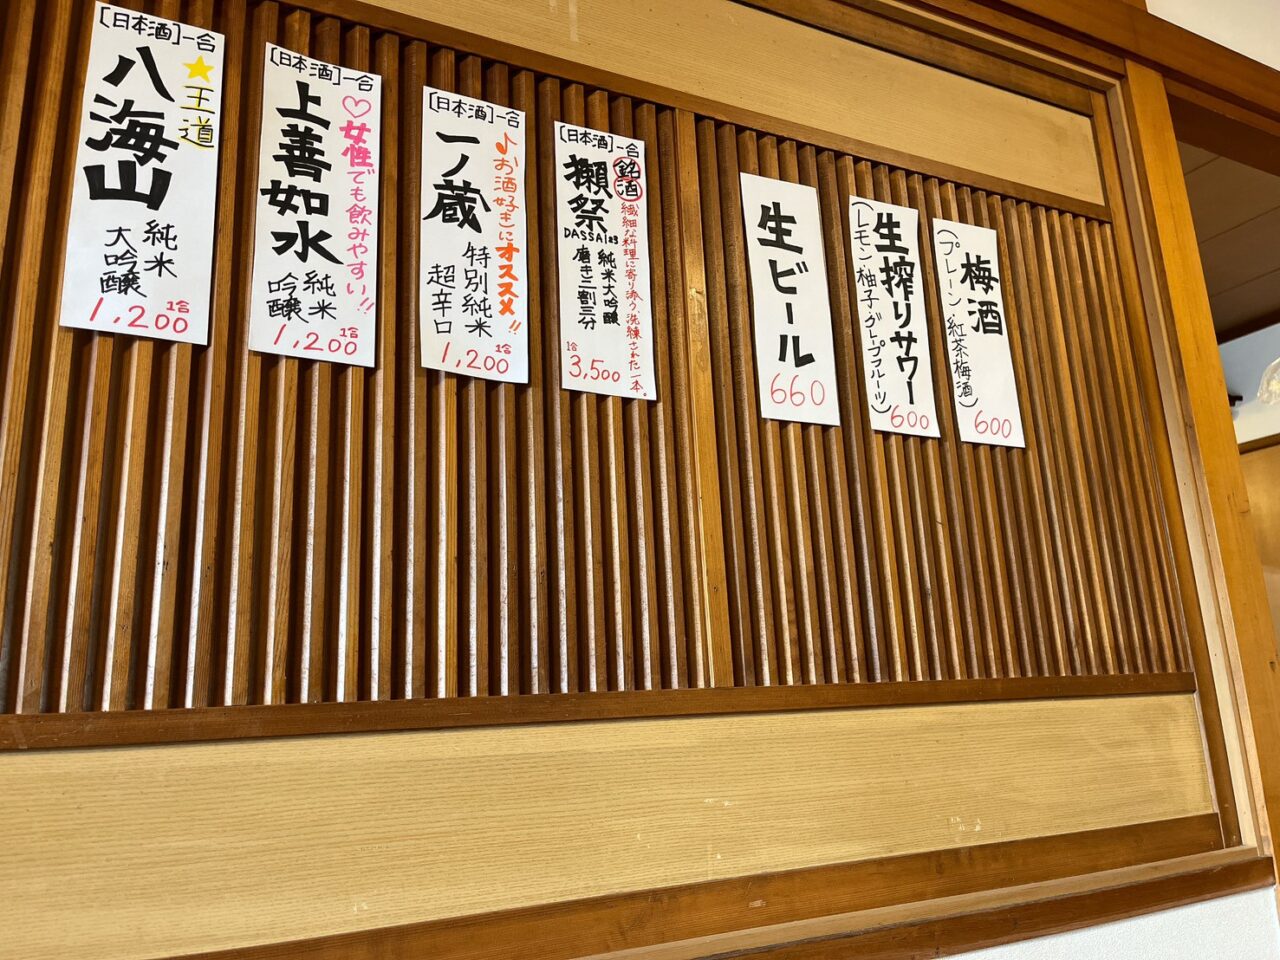 [日本酒]一合
★王道
八海山
純米
大吟醸
1合
1,200
[日本酒]一合
♡女性でも飲みやすい!!
上善如水
純米
吟醸
1合
1,200
[日本酒]一合
♪お酒好きにオススメ!!
一ノ蔵
特別純米
超辛口
1合
1,200
[日本酒]一合
銘酒
繊細な料理に寄り添う、洗練された一本。
獺祭
DASSAI23
純米大吟醸
磨き二割三分
1合
3,500
生ビール
660
生搾りサワー
(レモン・柚子・グレープフルーツ)
600
梅酒
(プレーン・紅茶梅酒)
600